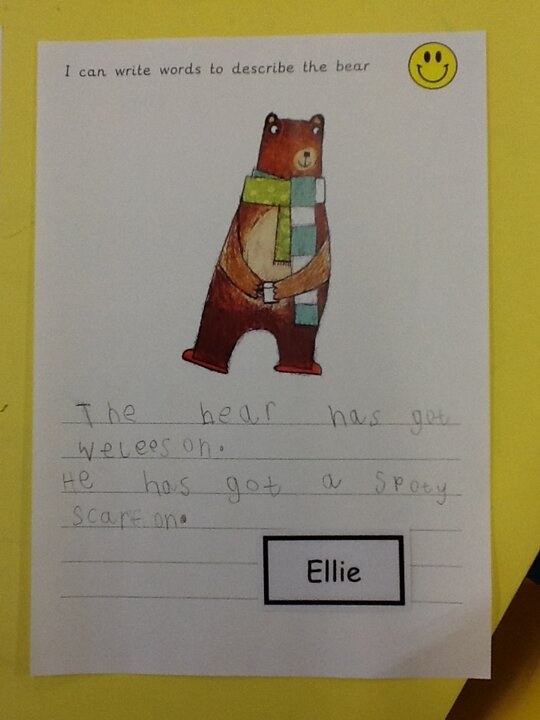 I can write words to describe the bear
The bear has got
welees on.
He has got a spoty
scarf on.
Ellie